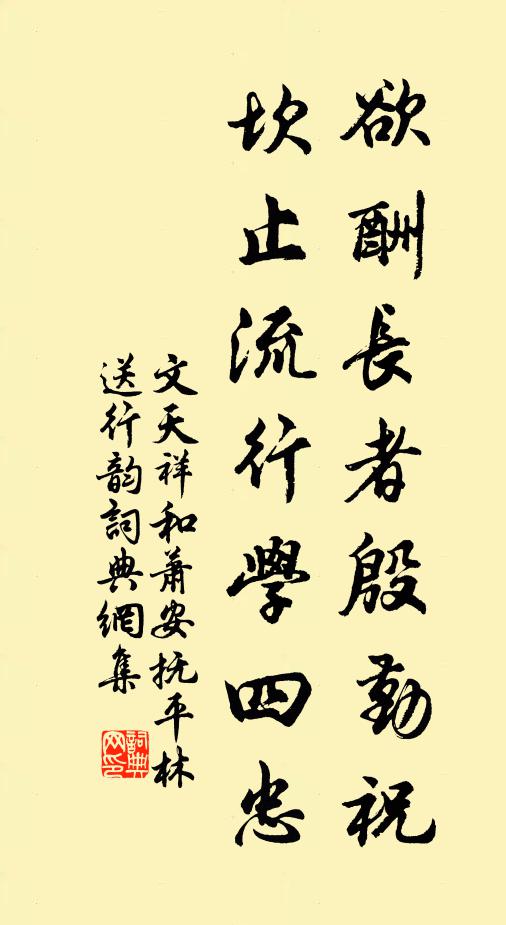 欲酬長者殷勤祝
坎止流行學四忠
文天祥和萧安抚平林
送行韵詞典網集
詞典网印